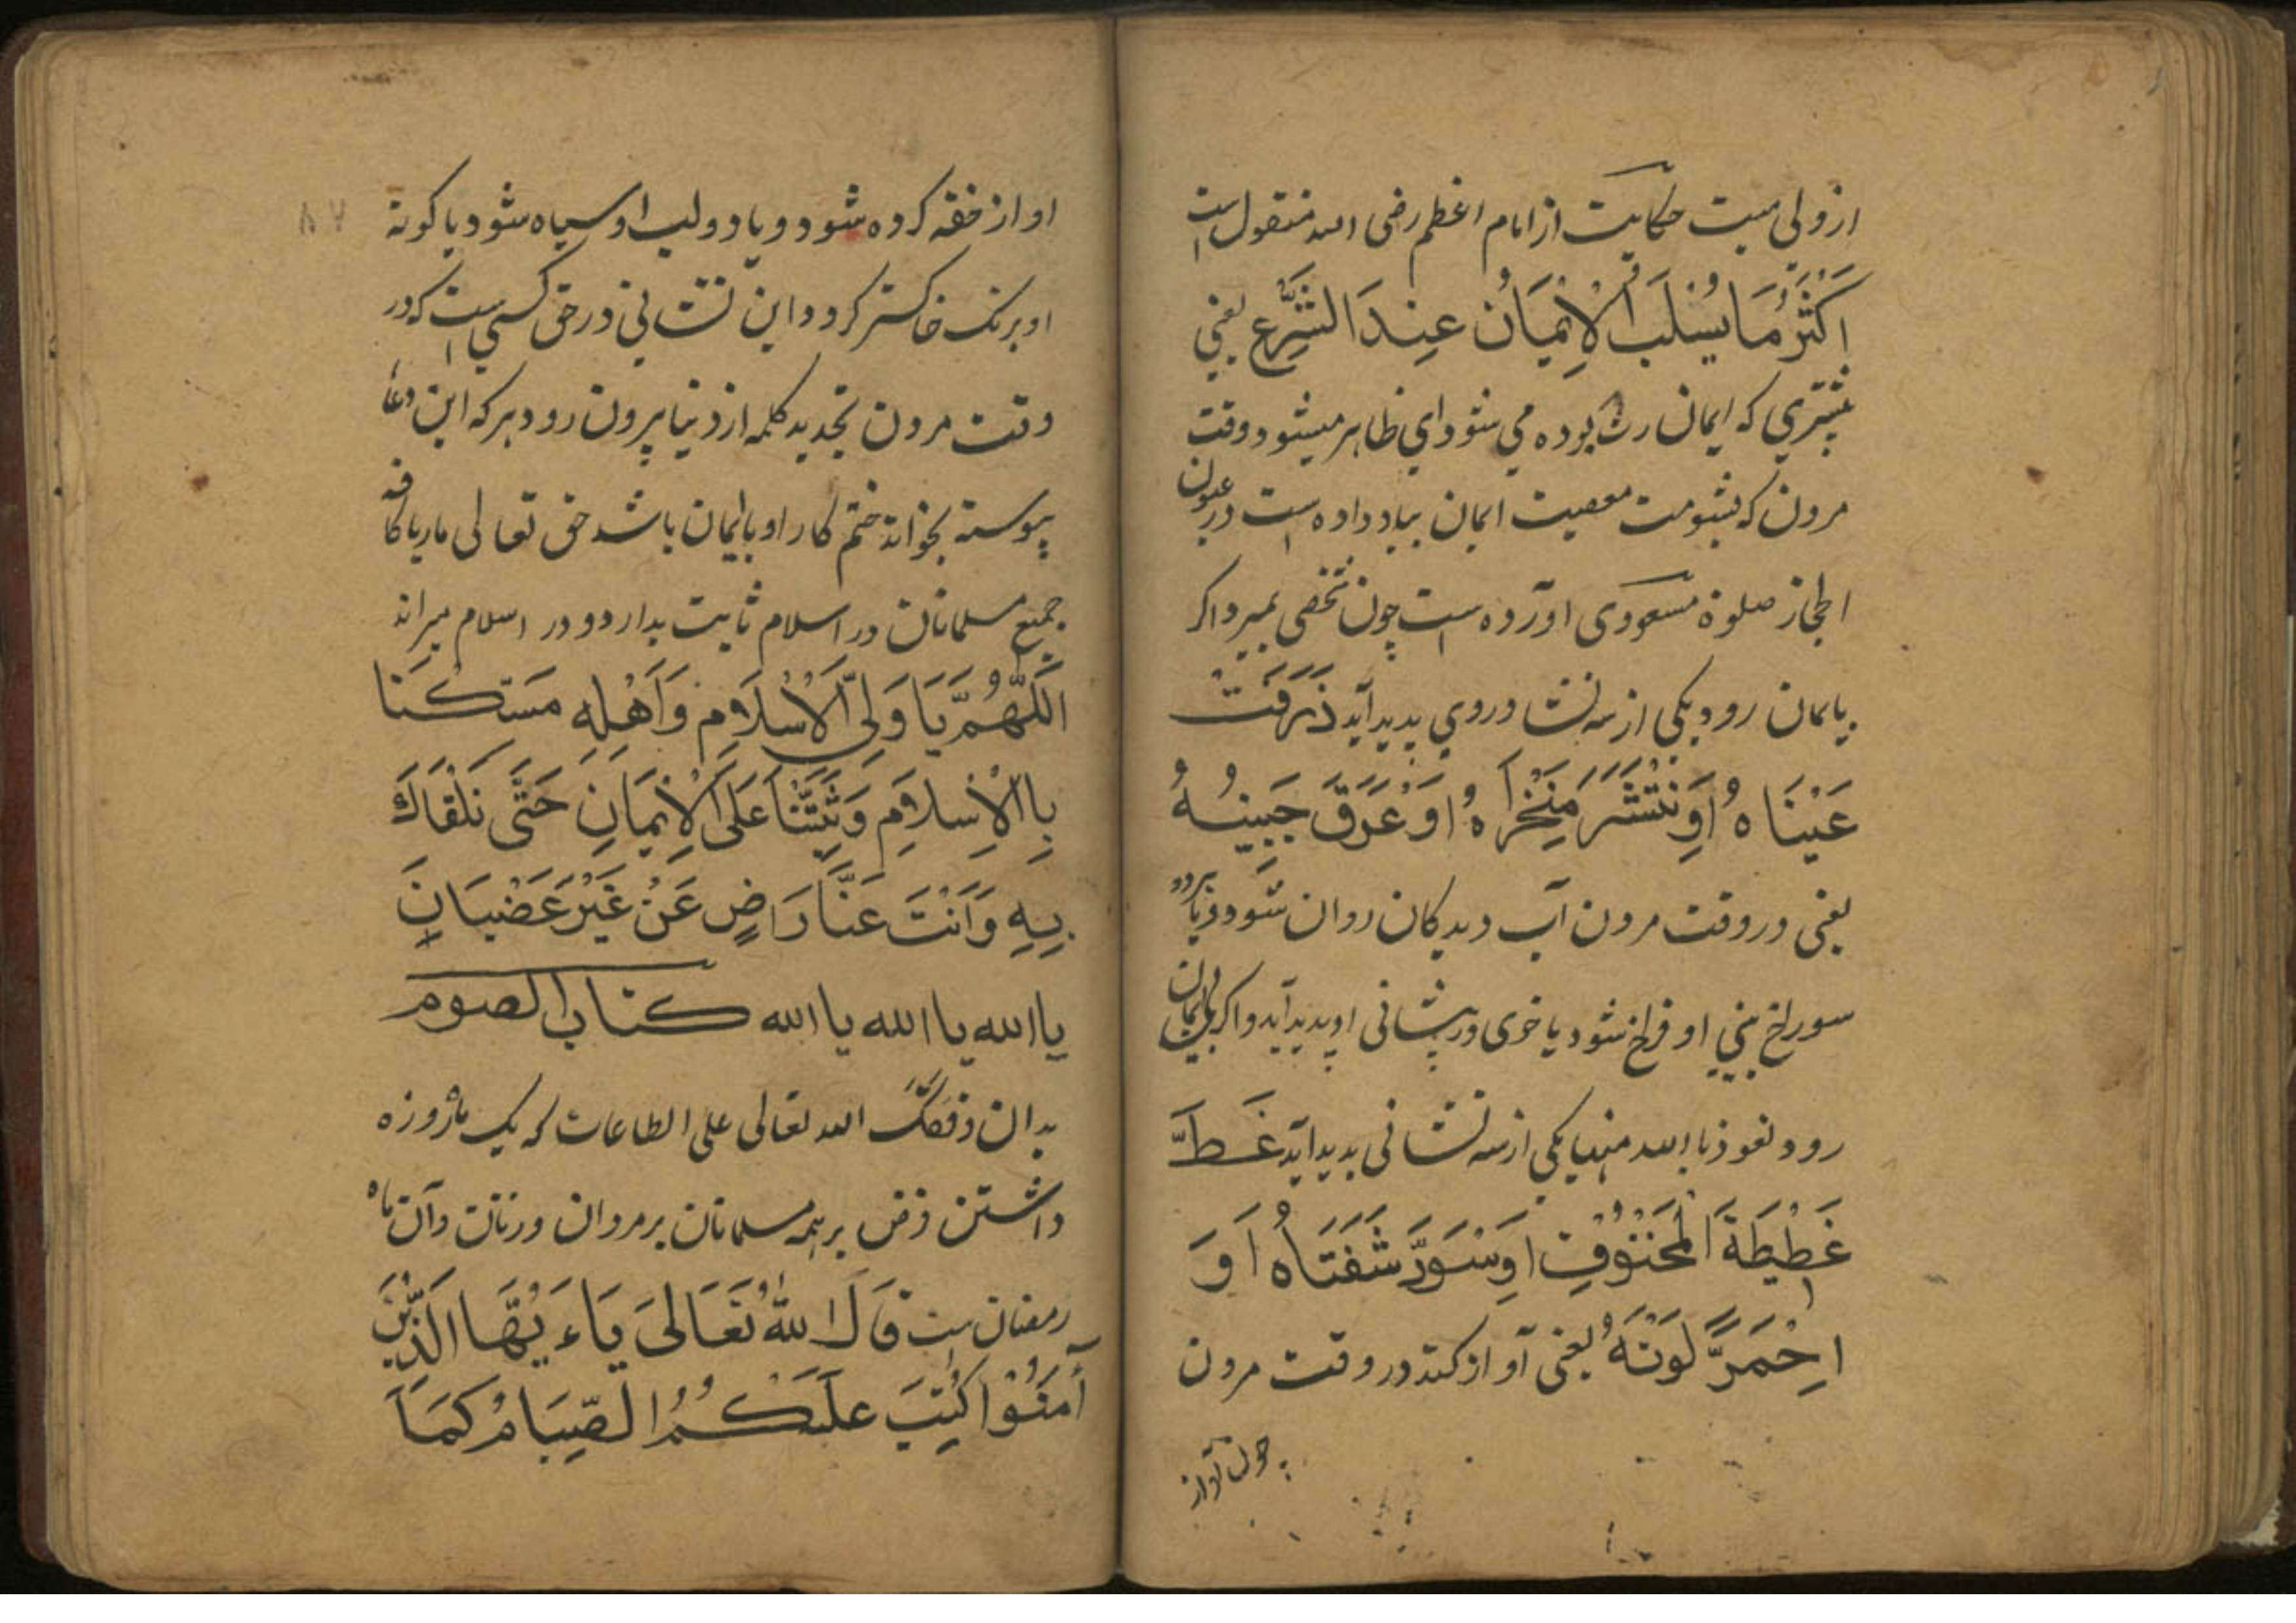 ازولی میت حکایت از امام اعظم رضی الله منقول است
اَکْثَرُ مَا یُسْلَبُ الْاِیْمَانُ عِنْدَ الشَّرْعِ یعنی
بیشتری که ایمان ربوده می شود ای ظاهر میشود وقت
مردن که بشومت معصیت ایمان بباد داده است در عیون
صلوة مسعودی اورده است چون شخصی بمیرد اکر
بایمان رود یکی از سه نشا در وی بدید آید ذَرَفَتْ
عَیْنَاهُ اَوِ نْتَشَرَ مَنْخِرَاهُ اَوْ عَرَقَ جَبِینُهُ
یعنی در وقت مردن آب دیدکان روان شود و یا هردو
سوراخ بینی او فراخ شود یا خوی در پیشانی او پدید آید و اکر بی ایمان
رود نعوذ بالله منها یکی از سه نشانی بدید اید غَطَّ
غَطِیطَةَ الْمَخْنُوْقِ اَوِ سْوَدَّ شَفَتَاهُ اَوَ
احْمَرَّ لَوْنَهُ یعنی آواز کند در وقت مردن
چون آواز
او از خفه کرده شود و یا دو لب او سیاه شود یا کونه
او برنک خاکستر کردد این نشانی در حق کسی است که در
وقت مردن تجدید کلمه از دنیا بیرون رود هر که این دعا
پیوسته بخواند ختم کار او باایمان باشد حق تعالی ماریا کافه
جمیع مسلمانان در اسلام ثابت بدارد و در اسلام میراند
اَللّٰهُمَّ یَا وَلِیَّ الْاِسْلَامِ وَاَهْلِهِ مَسِّکْنَا
بِاالْاِسْلَامِ وَثَبِّتْنَا عَلَی الْاِیْمَانِ حَتَّی نَلْقَاكَ
بِهِ وَاَنْتَ عَنَّا رَاضٍ عَنْ غَیْرِ غَضْبَانِ
یا الله یا الله یا الله کتاب الصوم
بدان وفقک الله تعالی علی الطاعات که یک ماه روزه
داشتن فرض بر همه مسلمانان بر مردان و زنان و آن ماه
رمضان است قَالَ اللهُ تَعَالیَ یَاءَیُّهَا الَذِّیْنَ
آمَنُوْا کُتِبَ عَلَیْکُمُ الصِّیَامُ کَمَا